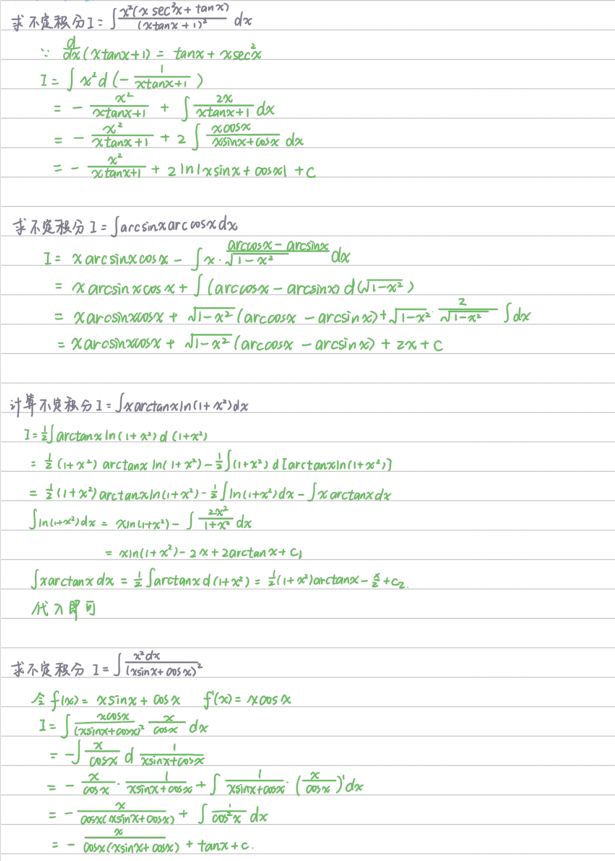 求不定积分 I = ∫ x²(x sec²x + tanx) / (xtanx + 1)² dx
∵ d/dx (xtanx+1) = tanx + xsec²x
I = ∫ x² d(- 1/(xtanx+1))
= - x²/(xtanx+1) + ∫ 2x/(xtanx+1) dx
= - x²/(xtanx+1) + 2∫ xcosx/(xsinx+cosx) dx
= - x²/(xtanx+1) + 2ln|xsinx + cosx| + C
求不定积分 I = ∫arcsinxarccosxdx
I = xarcsinxcosx - ∫x · (arccosx - arcsinx)/√(1-x²) dx
= xarcsinxcosx + ∫(arccosx - arcsinx) d(√(1-x²))
= xarcsinxcosx + √(1-x²) (arccosx - arcsinx) + √(1-x²) · 2/√(1-x²) ∫dx
= xarcsinxcosx + √(1-x²) (arccosx - arcsinx) + 2x + C
计算不定积分 I = ∫xarctanxln(1+x²)dx
I = 1/2∫arctanxln(1+x²)d(1+x²)
= 1/2 (1+x²) arctanxln(1+x²) - 1/2∫(1+x²)d[arctanxln(1+x²)]
= 1/2 (1+x²)arctanxln(1+x²) - 1/2∫ln(1+x²)dx - ∫xarctanxdx
∫ln(1+x²)dx = xln(1+x²) - ∫ 2x²/(1+x²) dx
= xln(1+x²) - 2x + 2arctanx + C₁
∫xarctanxdx = 1/2∫arctanxd(1+x²) = 1/2(1+x²)arctanx - x/2 + C₂.
代入即可
求不定积分 I = ∫ x²dx/(xsinx + cosx)²
令 f(x) = xsinx + cosx f'(x) = xcosx
I = ∫ xcosx/(xsinx+cosx)² x/cosx dx
= -∫ x/cosx d 1/(xsinx+cosx)
= - x/cosx · 1/(xsinx+cosx) + ∫ 1/(xsinx+cosx) · (x/cosx)' dx
= - x/(cosx(xsinx+cosx)) + ∫ 1/cos²x dx
= - x/(cosx(xsinx+cosx)) + tanx + C.